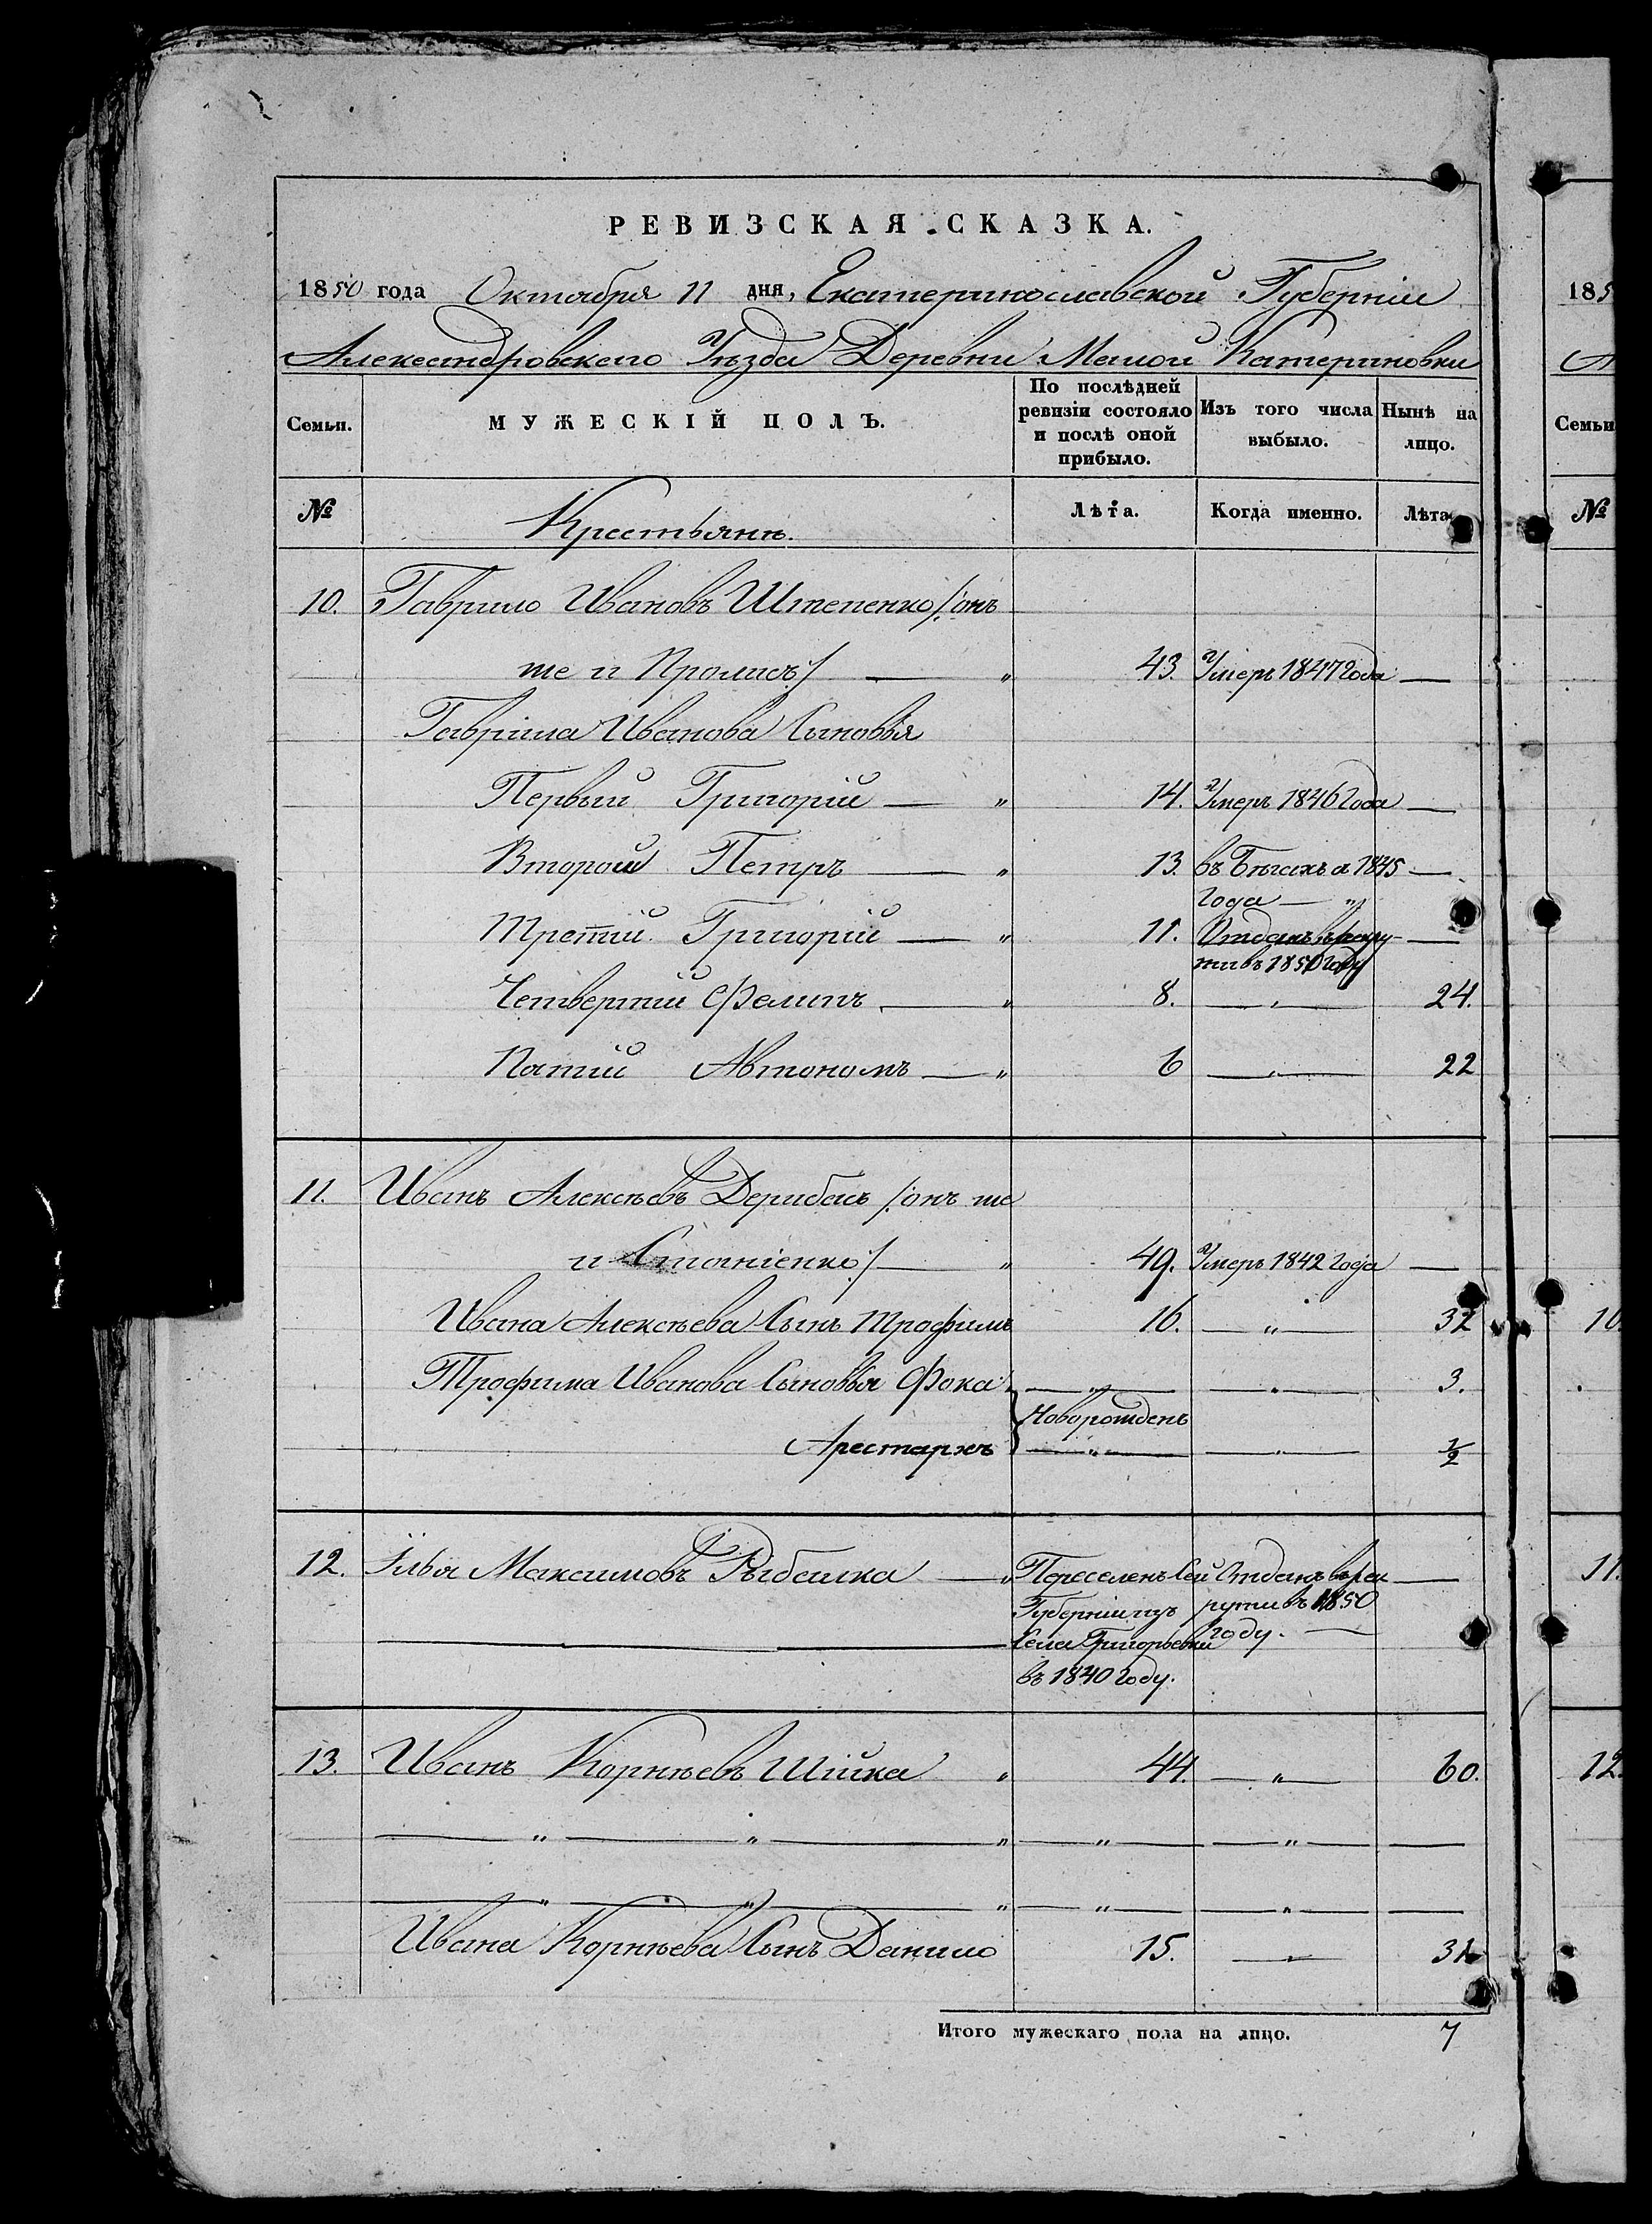 РЕВИЗСКАЯ СКАЗКА.
1850 года Октября 11 дня, Екатеринославской Губерніи
Александровскаго Уѣзда Деревни Малой Катериновки
Семьи. МУЖЕСКІЙ ПОЛЪ. По послѣдней ревизіи состояло и послѣ оной прибыло. Изъ того числа выбыло. Ныне на лицо.
№ Крестьянѣ. Лѣта. Когда именно. Лѣта
10. Гаврило Ивановъ Штепенко /:онъ
же и :/ — „ 43. Умеръ 1847 года —
Гаврила Иванова Сыновья
Первый Григорій — „ 14. Умеръ 1846 года —
Второй Петръ — „ 13. въ Бѣгахъ а 1845 —
года — „
Третій Григорій — „ 11. Отданъ въ рекру- —
ти въ 1850 году
Четвертій Фелипъ — „ 8. — „ — 24.
Пятій Автономъ — „ 6 — „ — 22
11. Иванъ Алексѣевъ Дерибасъ /:онъ же
и :/ — „ 49. Умеръ 1842 года —
Ивана Алексѣева Сынъ Трофимъ 16. — „ — 32
Трофима Иванова Сыновья Фока — „ — — „ — 3.
Новорожденъ
Арестархъ — „ — — „ — 1/2
12. Ілья Максимовъ Рыбалка — „ Переселенъ Сей Отданъ въ рек —
Губерніи изъ рути въ 1850
Села Григорьевки году. —
въ 1840 году.
13. Иванъ Корнѣевъ Шійка „ 44. — „ — 60.
— „ — „ — „ — „ — — „ — —
— „ — „ — „ — „ — — „ — —
Ивана Корнѣева Сынъ Данило 15. — „ — 31
Итого мужескаго пола на лицо. 7
185
Семьи
№
10.
11.
12.